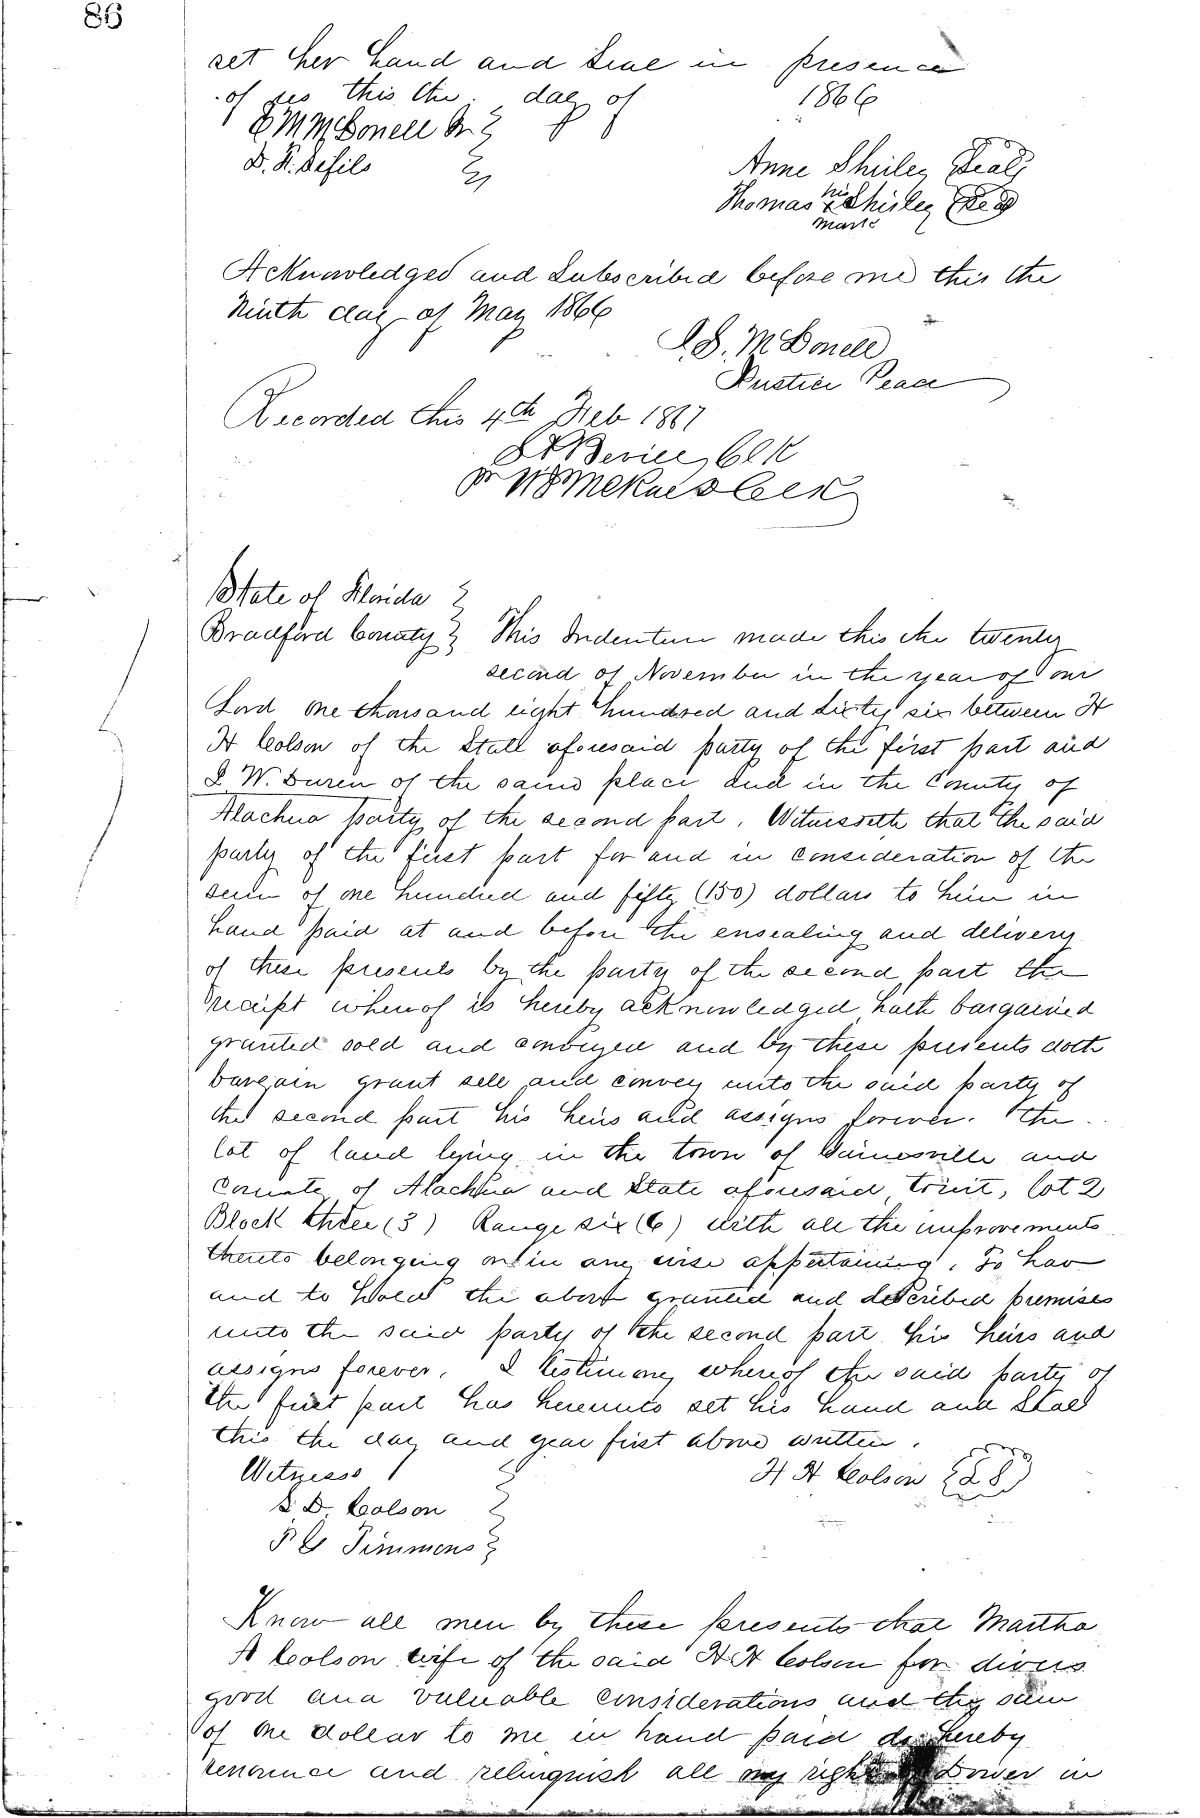 86
set her hand and Seal in presence
of us this the day of 1866
McDonell
D. F. Defils
Anne Shirley Seal
Thomas his x mark Shirley Seal
Acknowledged and Subscribed before me this the
Ninth day of May 1866
S. McDonell
Justice Peace
Recorded this 4th Feb 1867
Clk
State of Florida
Bradford County This Indenture made this the twenty
second of November in the year of our
Lord one thousand eight hundred and Sixty six between H
H Colson of the State aforesaid party of the first part and
I. W. Duren of the same place and in the County of
Alachua party of the second part. Witnesseth that the said
party of the first part for and in consideration of the
sum of one hundred and fifty (150) dollars to him in
hand paid at and before the ensealing and delivery
of these presents by the party of the second part the
receipt whereof is hereby acknowledged hath bargained
granted sold and conveyed and by these presents doth
bargain grant sell and convey unto the said party of
the second part his heirs and assigns forever. the
lot of land lying in the town of Gainesville and
County of Alachua and State aforesaid, lot 2
Block three (3) Range six (6) with all the improvements
thereto belonging or in any wise appertaining. To have
and to hold the above granted and described premises
unto the said party of the second part his heirs and
assigns forever. I testimony whereof the said party of
the first part has hereunto set his hand and Seal
this the day and year first above written.
Witness H H Colson LS
S. D. Colson
Timmons
Know all men by these presents that Martha
A Colson wife of the said H H Colson for divers
good and valuable considerations and the sum
of one dollar to me in hand paid do hereby
renounce and relinquish all my right Dower in